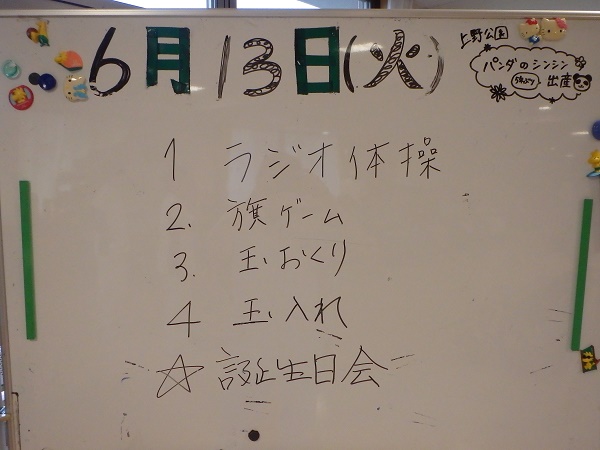 6月13日(火)
上野公園
パンダのシンシン
5年ぶり 出産
1 ラジオ体操
2. 旗ゲーム
3. 玉おくり
4 玉入れ
☆ 誕生日会